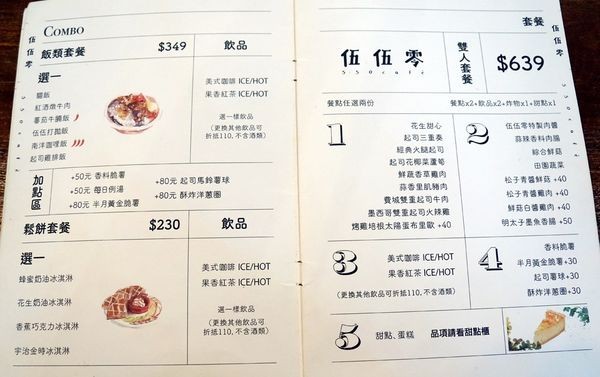 伍伍零
COMBO
飯類套餐 $349 飲品
選一
貓飯
紅酒燉牛肉
蕃茄牛腩飯
伍伍打拋飯
南洋咖哩飯
起司雞排飯
美式咖啡 ICE/HOT
果香紅茶 ICE/HOT
選一樣飲品
(更換其他飲品可
折抵110,不含酒類)
加點區
+50元 香料脆薯
+50元 每日例湯
+80元 半月黃金脆薯
+80元 起司馬鈴薯球
+80元 酥炸洋蔥圈
鬆餅套餐 $230 飲品
選一
蜂蜜奶油冰淇淋
花生奶油冰淇淋
香蕉巧克力冰淇淋
宇治金時冰淇淋
美式咖啡 ICE/HOT
果香紅茶 ICE/HOT
選一樣飲品
(更換其他飲品可
折抵110,不含酒類)
套餐
伍伍零
伍伍零
550café
雙人套餐
$639
餐點任選兩份 餐點x2+飲品x2+炸物x1+甜點x1
1
花生甜心
起司三重奏
經典火腿起司
起司花椰菜蘆筍
鮮蔬香草雞肉
蒜香里肌豬肉
費城雙重起司牛肉
墨西哥雙重起司火辣雞
烤雞培根太陽蛋布里歐 +40
2
伍伍零特製肉醬
蒜辣香料肉腸
綜合鮮菇
田園蔬菜
松子青醬鮮菇 +40
松子青醬雞肉 +40
鮮菇白醬雞肉 +40
明太子墨魚香腸 +50
3
美式咖啡 ICE/HOT
果香紅茶 ICE/HOT
(更換其他飲品可折抵110,不含酒類)
4
香料脆薯
半月黃金脆薯+30
起司薯球+30
酥炸洋蔥圈+30
5
甜點、蛋糕 品項請看甜點櫃